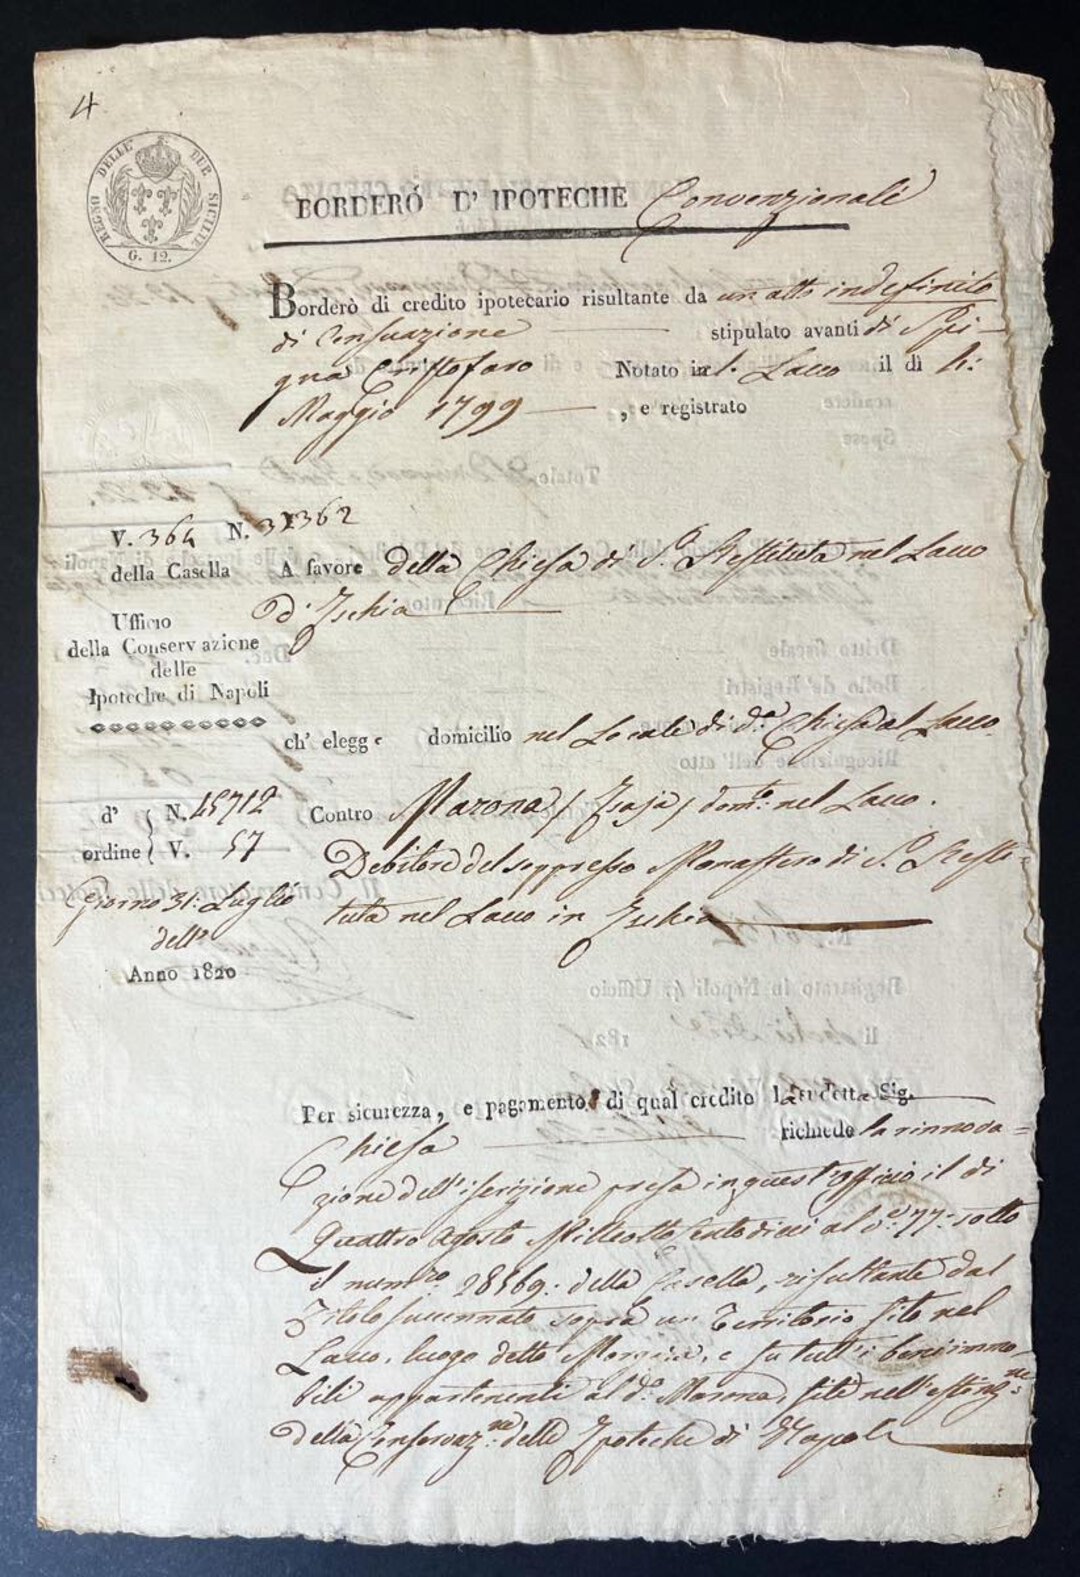 4
REGNO DELLE DUE SICILIE
G. 12.
BORDERÒ D' IPOTECHE Convenzionali
Borderò di credito ipotecario risultante da un atto indefinito
di Censuazione stipulato avanti di Spi-
gna Cristofaro Notato in l. Lacco il dì 4:
Maggio 1799 , e registrato
V. 364 N. 31362
della Casella A favore della Chiesa di S.ª Restituta nel Lacco
d'Ischia
Ufficio
della Conservazione
delle
Ipoteche di Napoli
ch' elegge domicilio nel Locale di d.ª Chiesa al Lacco.
d' ordine N. 45712
V. 57
Giorno 31: Luglio
dell'
Anno 1820
Contro Marona / Isaja / dom.º nel Lacco.
Debitore del soppresso Monastero di S.ª Resti=
tuta nel Lacco in Ischia
Per sicurezza, e pagamento di qual credito la sudetta Sig.
Chiesa richiede la rinnova=
zione dell'iscrizione presa in quest'officio il dì
Quattro Agosto Milleotto Cento dieci al V: 77: sotto
il num.ro 28569: della Casella, risultante dal
Titolo succennato sopra un Territorio sito nel
Lacco, luogo detto, e su tutt'i beni immo-
bili appartenenti al d.º Marona, siti nell'estenz.ne
della Conservaz.ne delle Ipoteche di Napoli